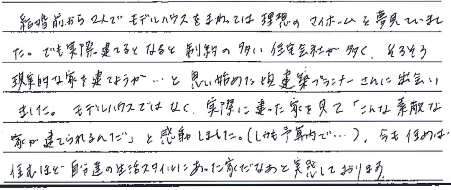 結婚前から2人でモデルハウスをまわっては理想のマイホームを夢見ていまし
た。でも実際建てるとなると制約の多い住宅会社が多く、そろそろ
現実的な家を建てようか…と思い始めた頃建築プランナーさんに出会い
ました。モデルハウスではなく、実際に建った家を見て「こんな素敵な
家が建てられるんだ」と感動しました。(しかも予算内で…)。今も住めば
住むほど自分達の生活スタイルにあった家だなあと実感しております